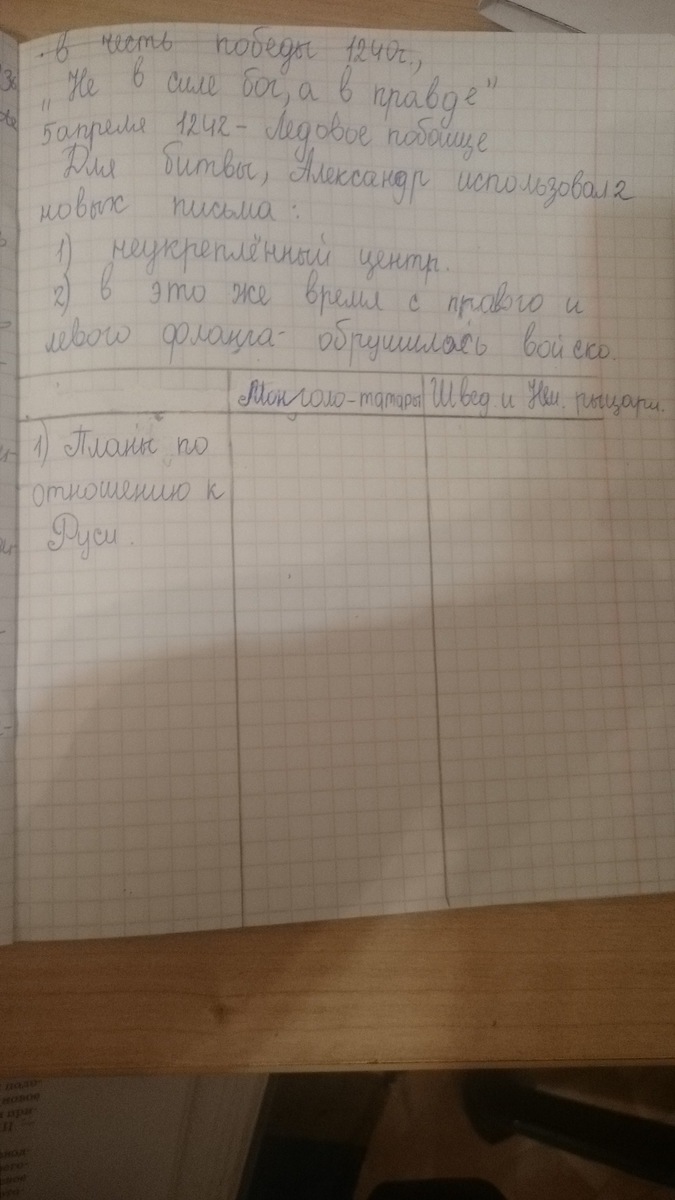 . в честь победы 1240г.,
„Не в силе бог, а в правде"
5 апреля 1242 - Ледовое побоище
Для битвы, Александр использовал 2
новых письма:
1) неукреплённый центр.
2) в это же время с правого и
левого фланга- обрушилась войско.
Монголо-татары Швед. и Нем. рыцари.
1) Планы по
отношению к
Руси.